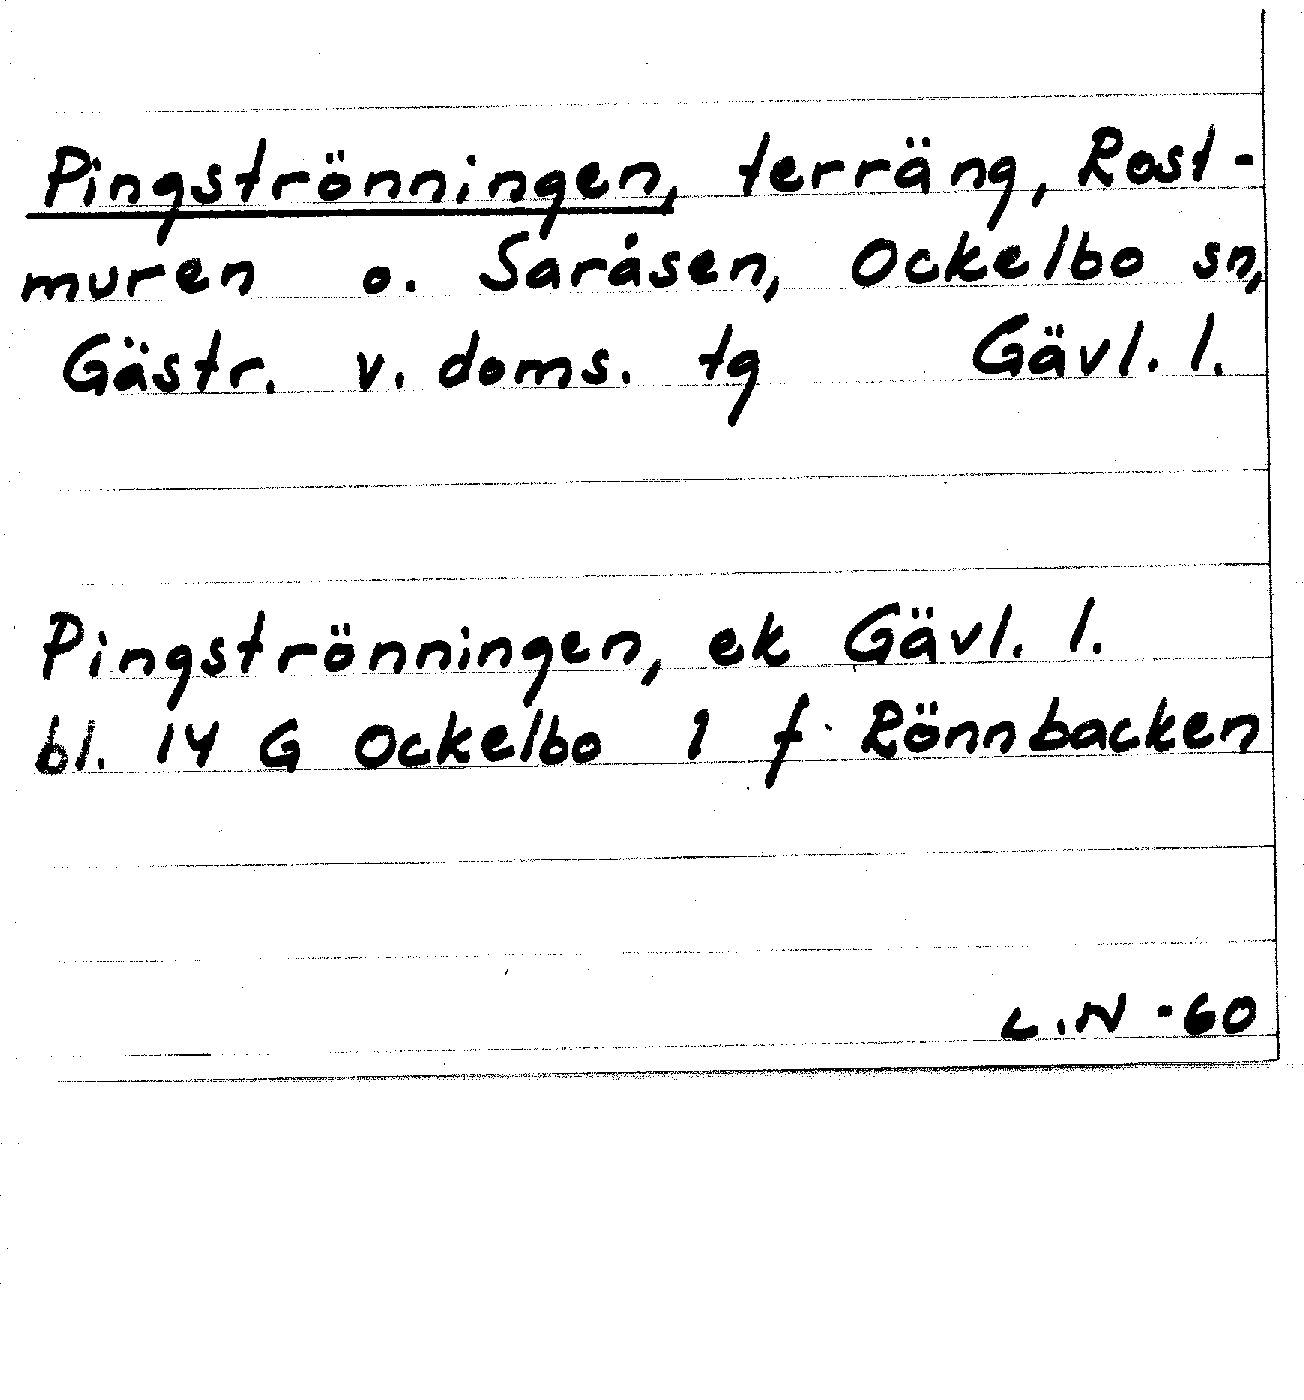 Pingströnningen, terräng, Rost-
muren o. Saråsen, Ockelbo sn,
Gästr. v. doms. tg Gävl. l.
Pingströnningen, ek Gävl. l.
bl. 14 G Ockelbo 1 f Rönnbacken
L.N -60